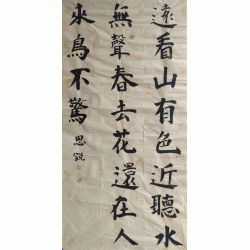 遠看山有色近聽水
無聲春去花還在人
來鳥不驚
思銳